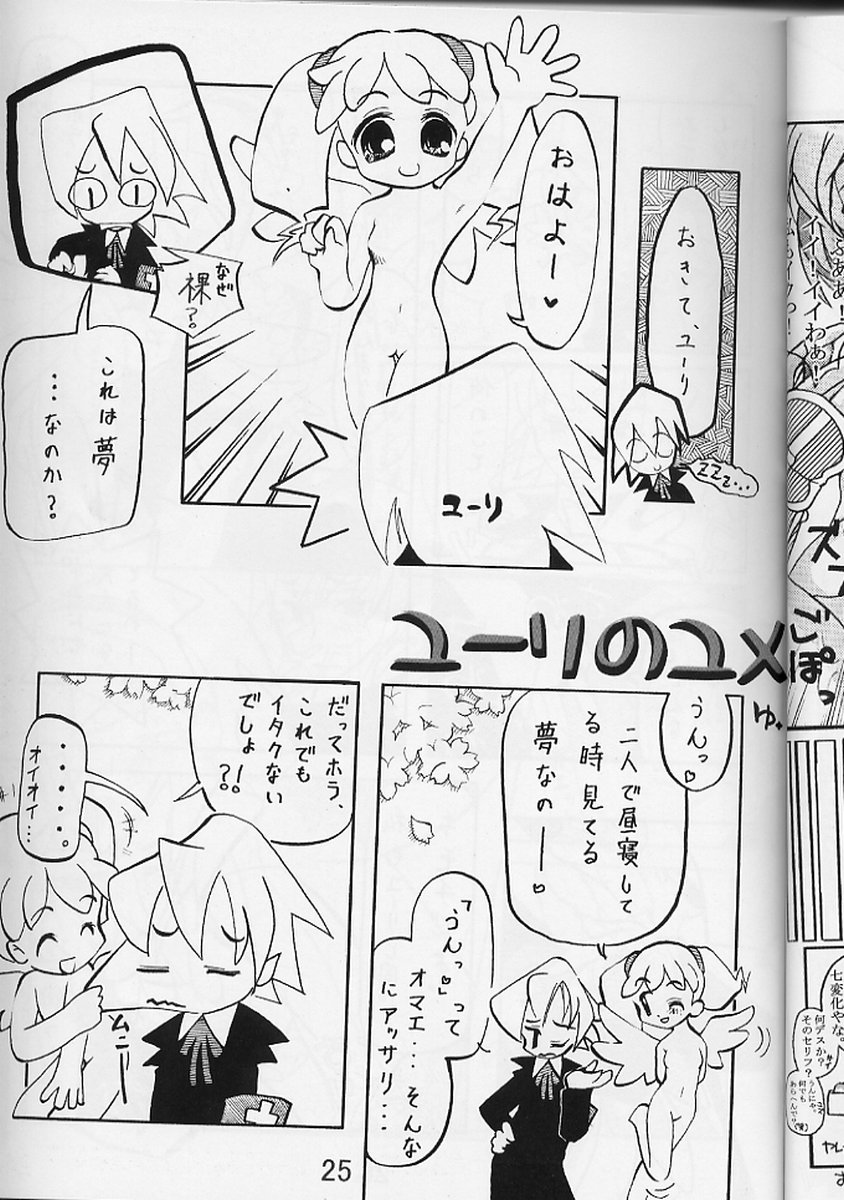 おきて、ユーリ
ZZZ...
おはよー♥
ユーリ
なぜ
裸?。
これは夢
…なのか?。
ユーリのユメ
ゆ。
うんっ♥
二人で昼寝して
る時見てる
夢なのー♥
「うんっ♥」って
オマエ…そんな
にアッサリ…
だってホラ、
これでも
イタクない
でしょ!?
・・・・・・。
オイオイ…
ムニー
25
イイ!イイわぁ!
ごぽっ
七変化やな。
何デスか?
そのセリフ?
うんにゃ。
何でも
あらへんで。